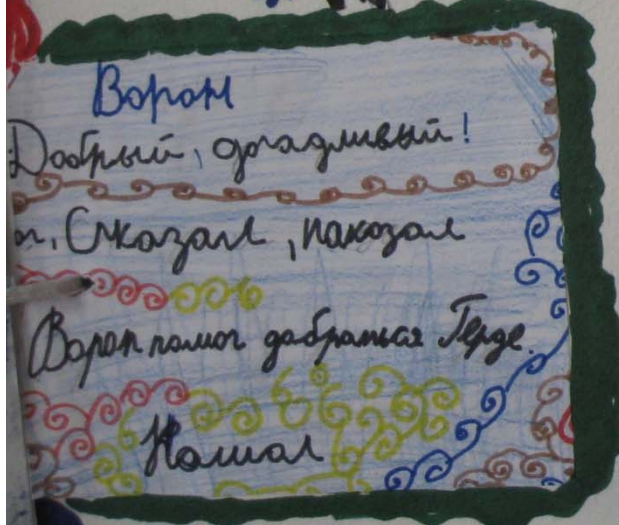 Ворон
Добрый, догадливый!
Сказал, показал
Ворон помог добраться Герде.